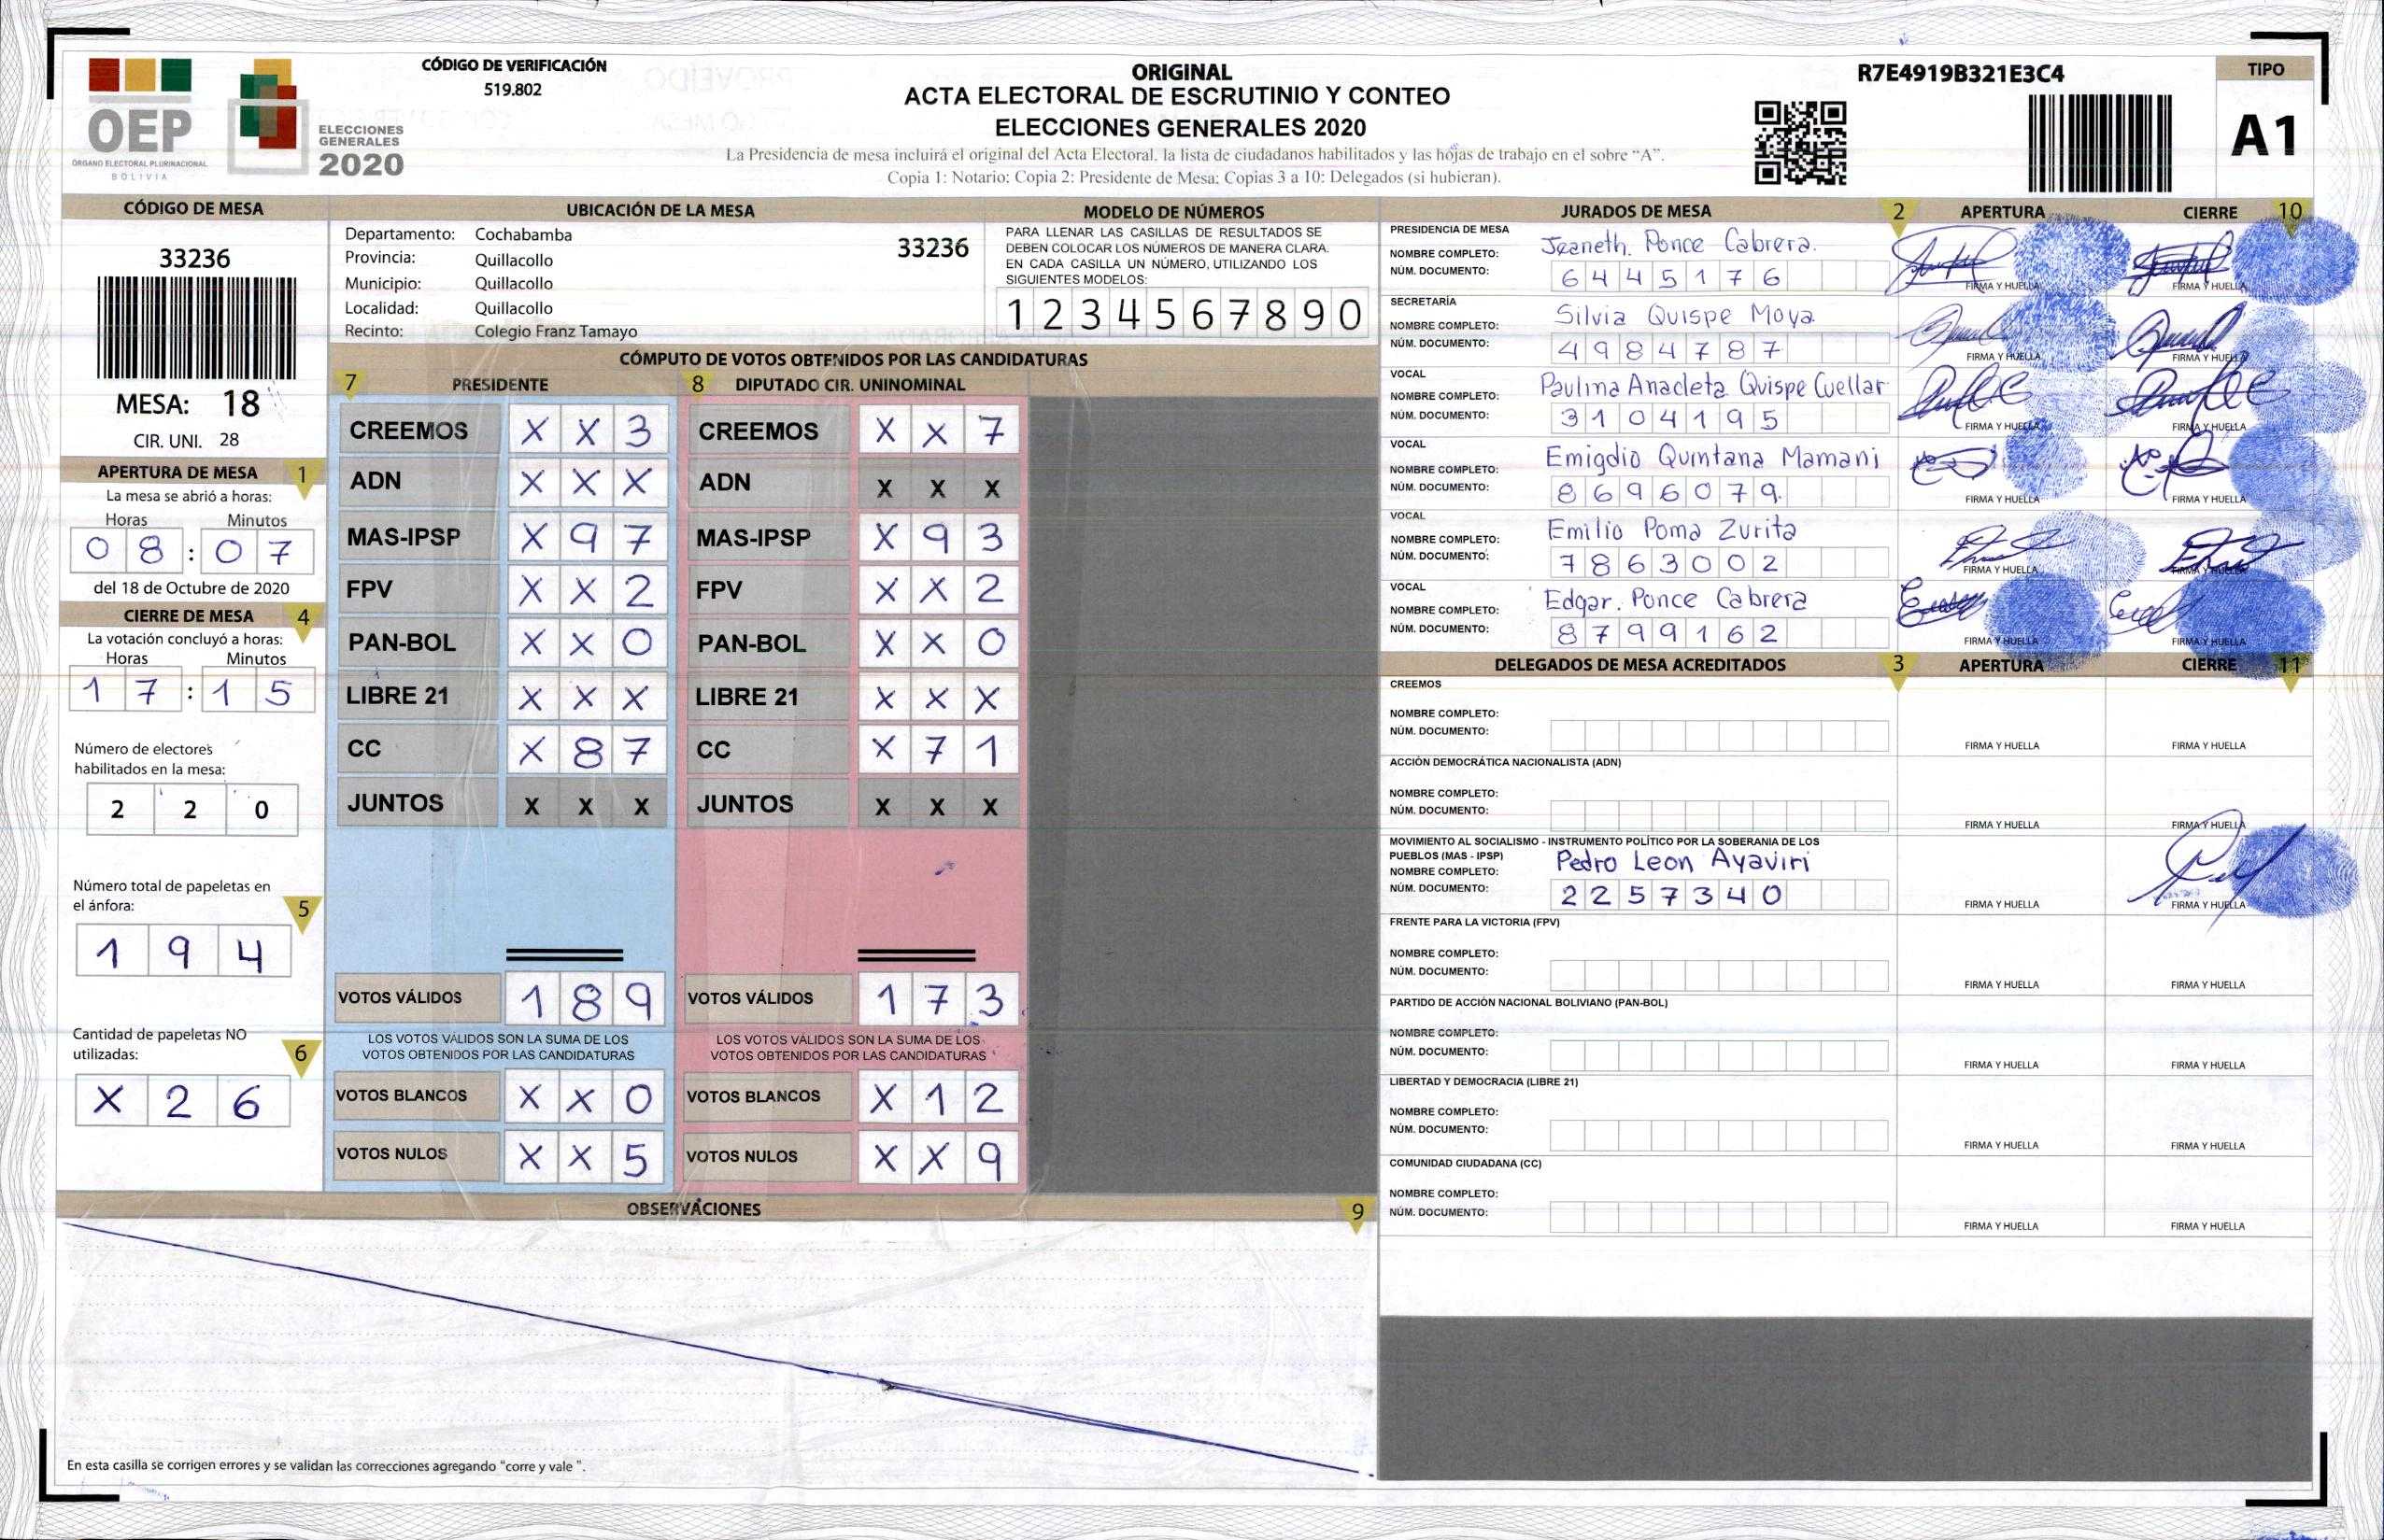 OEP
ÓRGANO ELECTORAL PLURINACIONAL
BOLIVIA
ELECCIONES
GENERALES
2020
CÓDIGO DE VERIFICACIÓN
519.802
ORIGINAL
ACTA ELECTORAL DE ESCRUTINIO Y CONTEO
ELECCIONES GENERALES 2020
La Presidencia de mesa incluirá el original del Acta Electoral, la lista de ciudadanos habilitados y las hojas de trabajo en el sobre "A".
Copia 1: Notario; Copia 2: Presidente de Mesa; Copias 3 a 10: Delegados (si hubieran).
R7E4919B321E3C4
TIPO
A1
CÓDIGO DE MESA
33236
MESA: 18
CIR. UNI. 28
APERTURA DE MESA 1
La mesa se abrió a horas:
Horas Minutos
0 8 : 0 7
del 18 de Octubre de 2020
CIERRE DE MESA 4
La votación concluyó a horas:
Horas Minutos
1 7 : 1 5
Número de electores
habilitados en la mesa:
2 2 0
Número total de papeletas en
el ánfora: 5
1 9 4
Cantidad de papeletas NO
utilizadas: 6
X 2 6
UBICACIÓN DE LA MESA
Departamento: Cochabamba 33236
Provincia: Quillacollo
Municipio: Quillacollo
Localidad: Quillacollo
Recinto: Colegio Franz Tamayo
MODELO DE NÚMEROS
PARA LLENAR LAS CASILLAS DE RESULTADOS SE
DEBEN COLOCAR LOS NÚMEROS DE MANERA CLARA.
EN CADA CASILLA UN NÚMERO, UTILIZANDO LOS
SIGUIENTES MODELOS:
1 2 3 4 5 6 7 8 9 0
CÓMPUTO DE VOTOS OBTENIDOS POR LAS CANDIDATURAS
7 PRESIDENTE 8 DIPUTADO CIR. UNINOMINAL
CREEMOS X X 3 CREEMOS X X 7
ADN X X X ADN X X X
MAS-IPSP X 9 7 MAS-IPSP X 9 3
FPV X X 2 FPV X X 2
PAN-BOL X X 0 PAN-BOL X X 0
LIBRE 21 X X X LIBRE 21 X X X
CC X 8 7 CC X 7 1
JUNTOS X X X JUNTOS X X X
VOTOS VÁLIDOS 1 8 9 VOTOS VÁLIDOS 1 7 3
LOS VOTOS VÁLIDOS SON LA SUMA DE LOS LOS VOTOS VÁLIDOS SON LA SUMA DE LOS
VOTOS OBTENIDOS POR LAS CANDIDATURAS VOTOS OBTENIDOS POR LAS CANDIDATURAS
VOTOS BLANCOS X X 0 VOTOS BLANCOS X 1 2
VOTOS NULOS X X 5 VOTOS NULOS X X 9
OBSERVACIONES 9
En esta casilla se corrigen errores y se validan las correcciones agregando "corre y vale ".
JURADOS DE MESA 2 APERTURA CIERRE 10
PRESIDENCIA DE MESA
NOMBRE COMPLETO: Jeaneth. Ponce Cabrera.
NÚM. DOCUMENTO: 6 4 4 5 1 7 6 FIRMA Y HUELLA FIRMA Y HUELLA
SECRETARÍA
NOMBRE COMPLETO: Silvia Quispe Moya
NÚM. DOCUMENTO: 4 9 8 4 7 8 7 FIRMA Y HUELLA FIRMA Y HUELLA
VOCAL
NOMBRE COMPLETO: Paulina Anacleta Quispe Cuellar
NÚM. DOCUMENTO: 3 1 0 4 1 9 5 FIRMA Y HUELLA FIRMA Y HUELLA
VOCAL
NOMBRE COMPLETO: Emigdio Quintana Mamani
NÚM. DOCUMENTO: 8 6 9 6 0 7 9. FIRMA Y HUELLA FIRMA Y HUELLA
VOCAL
NOMBRE COMPLETO: Emilio Poma Zurita
NÚM. DOCUMENTO: 7 8 6 3 0 0 2 FIRMA Y HUELLA FIRMA Y HUELLA
VOCAL
NOMBRE COMPLETO: Edgar. Ponce Cabrera
NÚM. DOCUMENTO: 8 7 9 9 1 6 2 FIRMA Y HUELLA FIRMA Y HUELLA
DELEGADOS DE MESA ACREDITADOS 3 APERTURA CIERRE 11
CREEMOS
NOMBRE COMPLETO:
NÚM. DOCUMENTO: FIRMA Y HUELLA FIRMA Y HUELLA
ACCIÓN DEMOCRÁTICA NACIONALISTA (ADN)
NOMBRE COMPLETO:
NÚM. DOCUMENTO: FIRMA Y HUELLA FIRMA Y HUELLA
MOVIMIENTO AL SOCIALISMO - INSTRUMENTO POLÍTICO POR LA SOBERANIA DE LOS
PUEBLOS (MAS - IPSP)
NOMBRE COMPLETO: Pedro Leon Ayaviri
NÚM. DOCUMENTO: 2 2 5 7 3 4 0 FIRMA Y HUELLA FIRMA Y HUELLA
FRENTE PARA LA VICTORIA (FPV)
NOMBRE COMPLETO:
NÚM. DOCUMENTO: FIRMA Y HUELLA FIRMA Y HUELLA
PARTIDO DE ACCIÓN NACIONAL BOLIVIANO (PAN-BOL)
NOMBRE COMPLETO:
NÚM. DOCUMENTO: FIRMA Y HUELLA FIRMA Y HUELLA
LIBERTAD Y DEMOCRACIA (LIBRE 21)
NOMBRE COMPLETO:
NÚM. DOCUMENTO: FIRMA Y HUELLA FIRMA Y HUELLA
COMUNIDAD CIUDADANA (CC)
NOMBRE COMPLETO:
NÚM. DOCUMENTO: FIRMA Y HUELLA FIRMA Y HUELLA